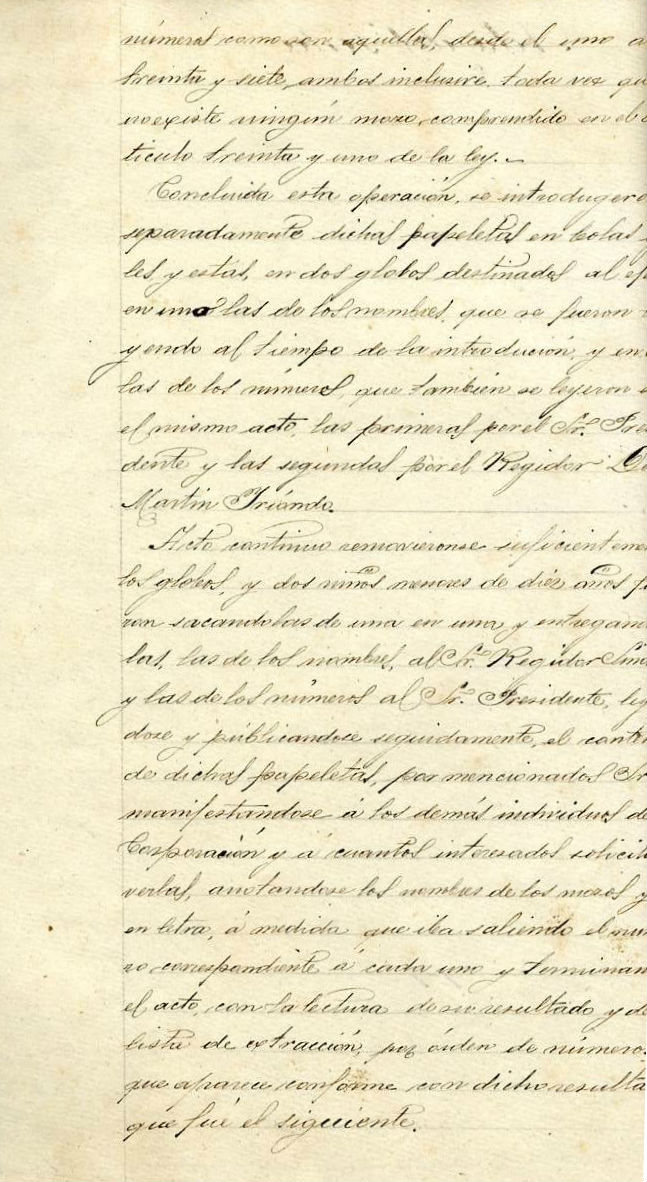 números como son aquellas, desde el uno a
treinta y siete, ambos inclusive, toda vez qu
no existe ningún mozo, comprendido en el
ticulo treinta y uno de la ley.
Concluida esta operación, se introdugero
separadamente dichas papeletas en bolas
les y estas, en dos globos destinados al ef
en uno las de los nombres, que se fueron
yendo al tiempo de la introdución, y en
las de los números, que tambien se leyeron
el mismo acto, las primeras por el Sr. Pres
dente y las segundas por el Regidor D
Martin
Acto continuo removieronse suficienteme
los globos, y dos niños menores de diéz años f
ron sacandolas de una en una y entregand
las, las de los nombres, al Sr. Regidor Sind
y las de los números al Sr. Presidente, ley
dose y publicandose seguidamente, el conte
de dichas papeletas, por mencionados Sr
manifestandose á los demás individuos de
Corporación y á cuantos interesados solicit
verlas, anotandose los nombres de los mozos y
en letra, á medida que iba saliendo el nu
ro correspondiente á cada uno y terminan
el acto, con la lectura de su resultado y de
lista de extracción, por órden de números
que aparece conforme con dicho resulta
que fué el siguiente.